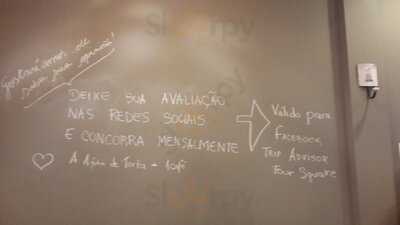 Gostaríamos de
saber sua opinião!
DEIXE SUA AVALIAÇÃO
NAS REDES SOCIAIS
E CONCORRA MENSALMENTE
A
Torta + café
Válido para
FACEBOOK
TRIP ADVISOR
FOUR SQUARE